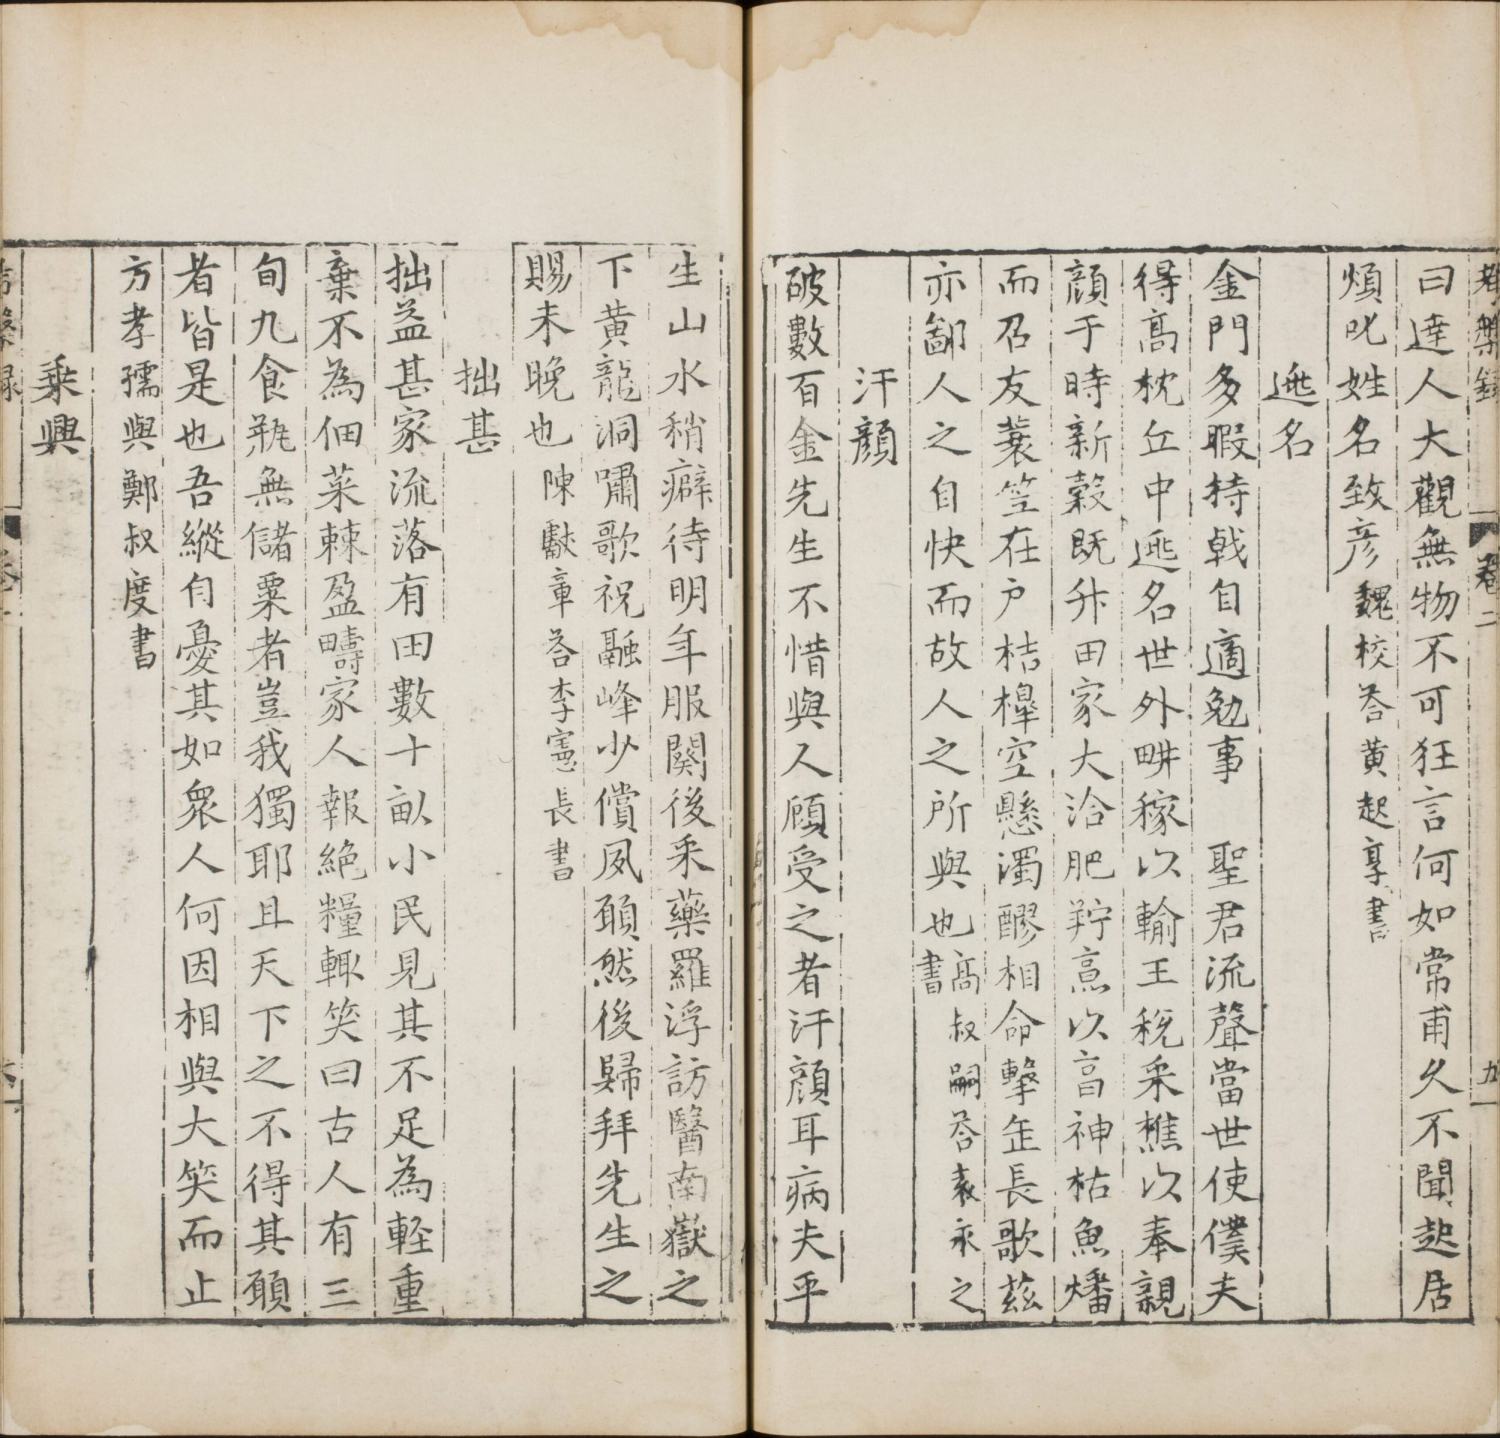 考槃錄
卷二
九
曰達人大觀無物不可狂言何如常甫久不聞起居
煩叱姓名致彦魏校荅黄起享書
逃名
金門多暇待㦸自適勉事 聖君流聲當世使僕夫
得高枕丘中逃名世外畊稼以輸王稅采樵以奉親
顔于時新穀既升田家大洽肥羜烹以亯神枯魚燔
而召友蓑笠在户桔槹空懸濁醪相命擊缶長歌茲
亦鄙人之自快而故人之所與也高叔嗣荅袁永之
書
汗顔
破數百金先生不惜與人顧受之者汗顔耳病夫平
生山水稍癖待明年服闋後采藥羅浮訪醫南嶽之
下黄龍洞嘯歌祝融峰少償夙願然後歸拜先生之
賜未晚也陳獻章荅李憲長書
拙甚
拙益甚家流落有田數十畝小民見其不足為輕重
棄不為佃菜棘盈疇家人報絶糧輒笑曰古人有三
旬九食瓶無儲粟者豈我獨耶且天下之不得其願
者皆是也吾縱自憂其如衆人何因相與大笑而止
方孝孺與鄭叔度書
乘興